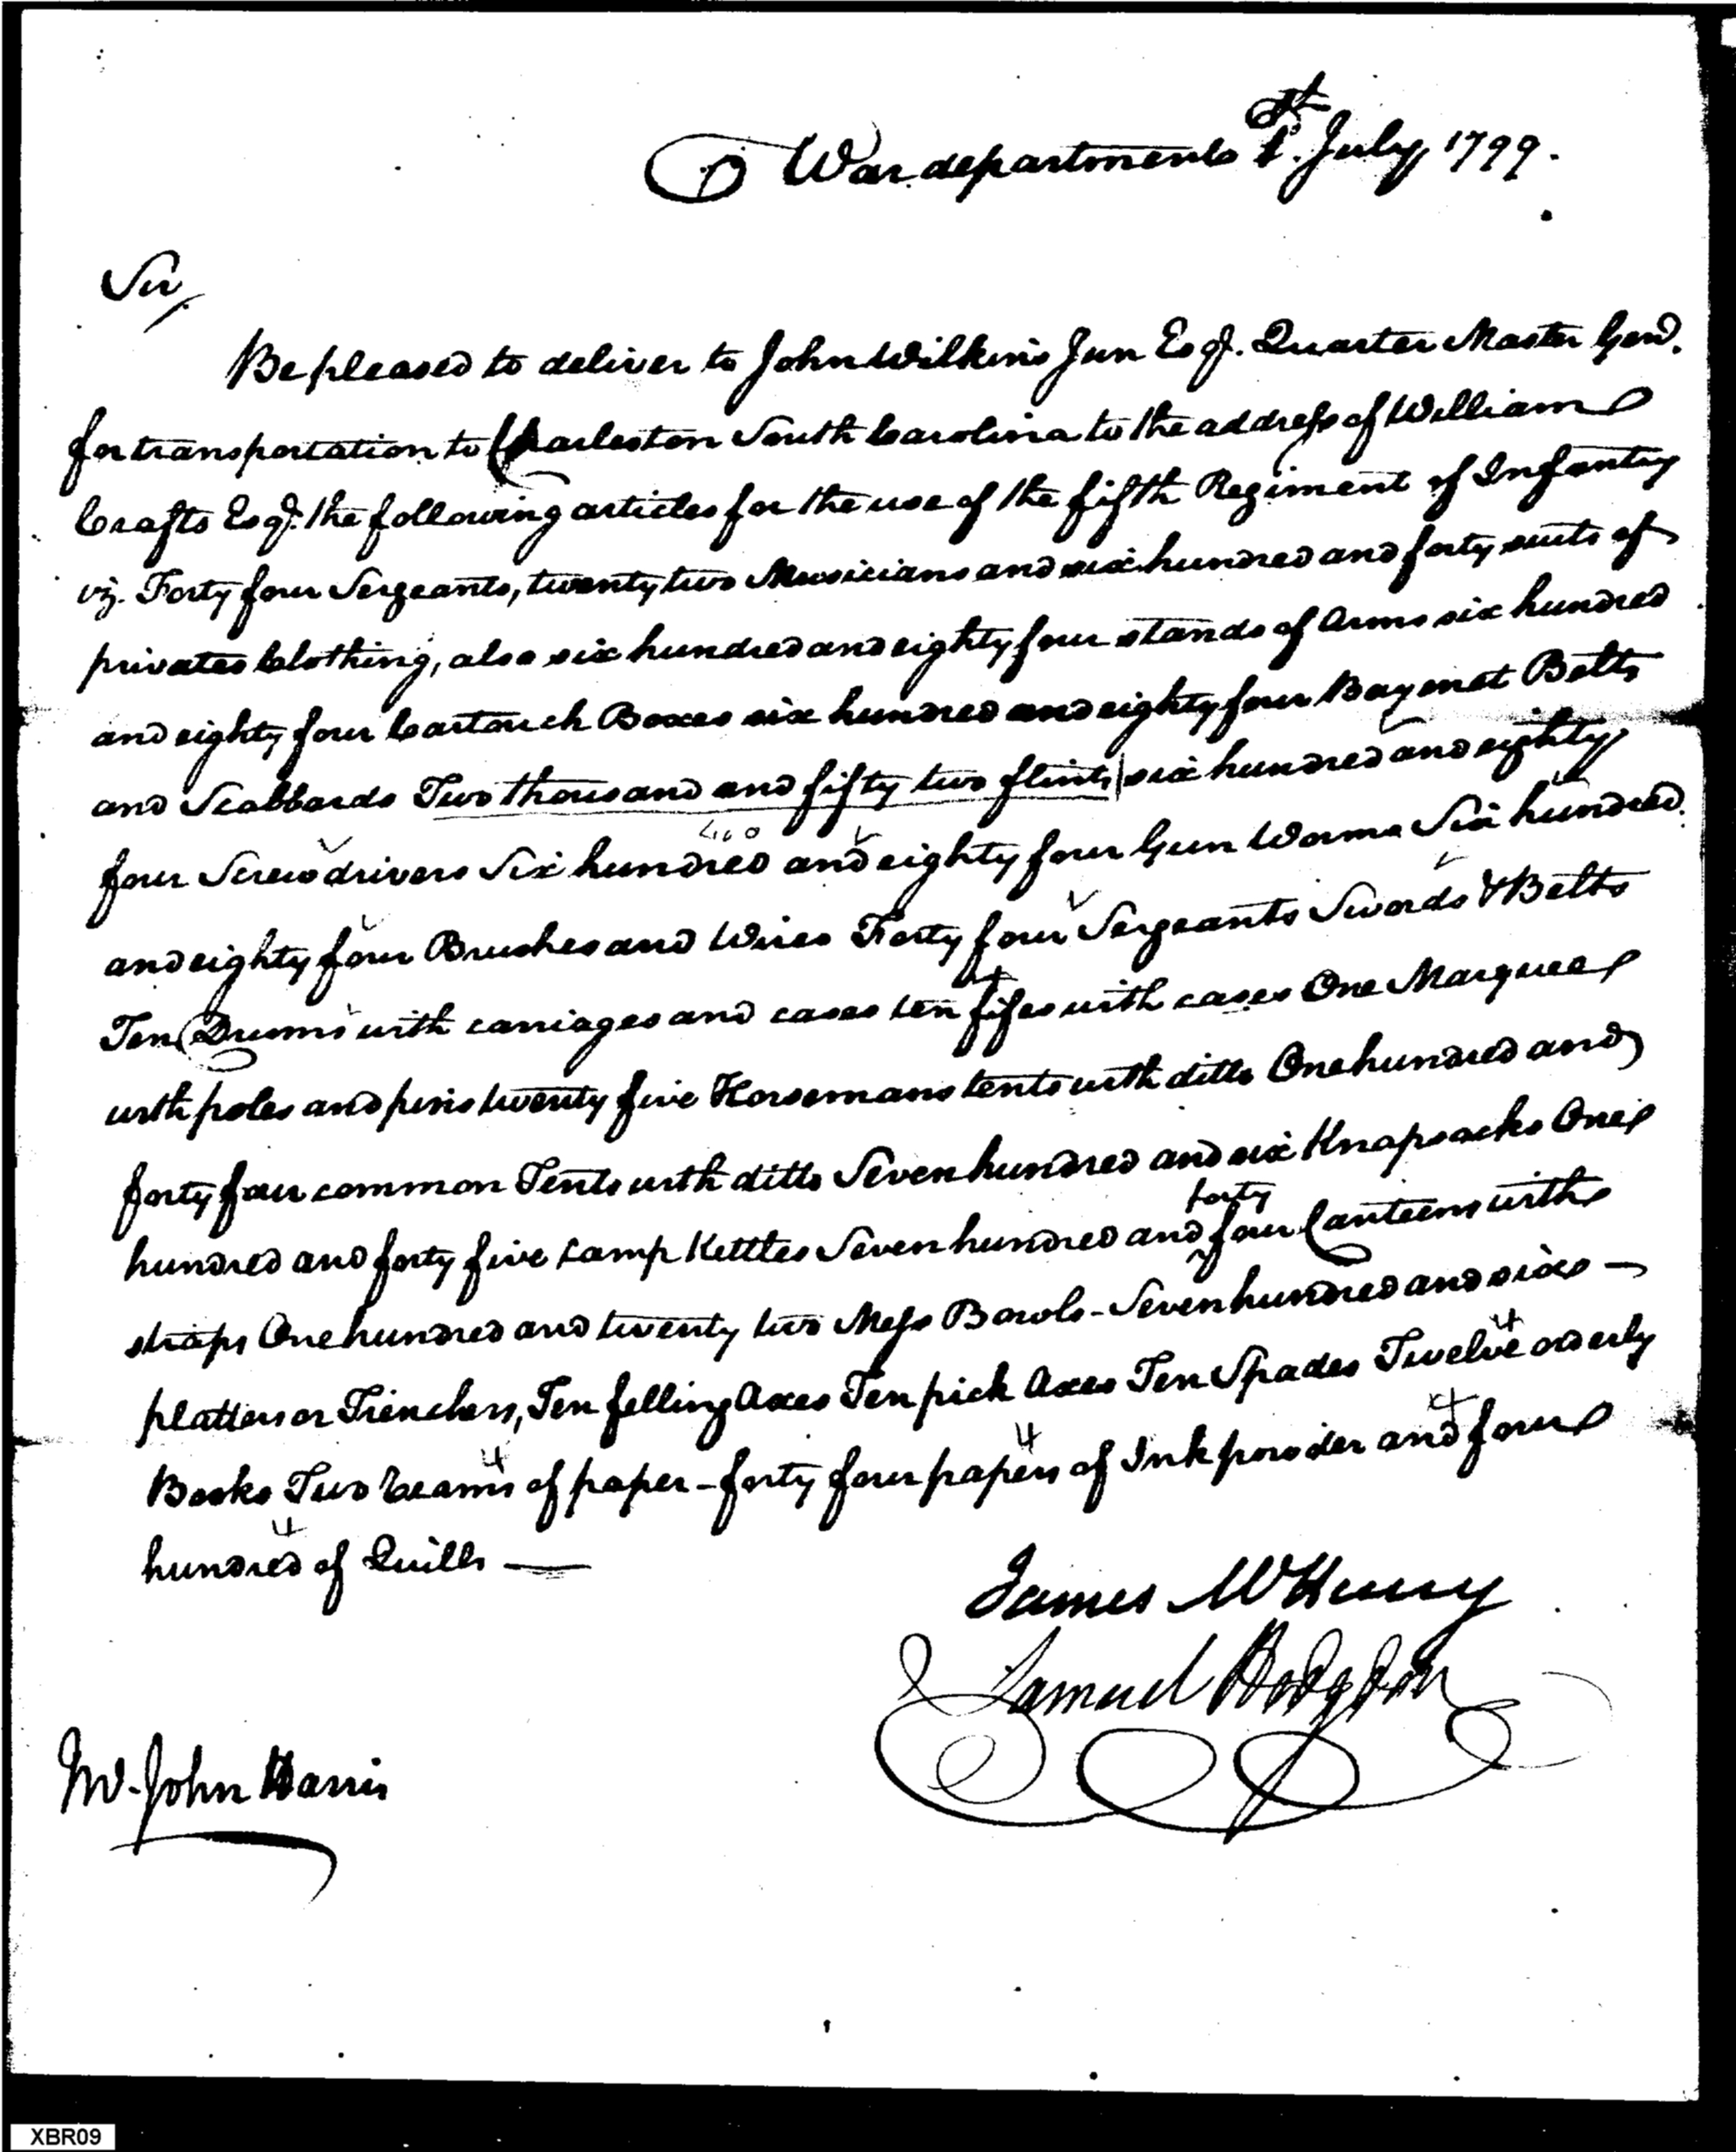 War department 1st. July 1799.
Sir,
Be pleased to deliver to John Wilkins Jun Esqr. Quarter Master Genl.
for transportation to Charleston South Carolina to the address of William
Crafts Esqr. the following articles for the use of the fifth Regiment of Infantry
viz. Forty four Sergeants, twenty two Musicians and six hundred and forty suits of
privates Clothing, also six hundred and eighty four stands of Arms six hundred
and eighty four Cartouch Boxes six hundred and eighty four Bayonet Belts
and Scabbards Two thousand and fifty two flints six hundred and eighty
four Screw drivers Six hundred and eighty four Gun Worms Six hundred
and eighty four Brushes and Wires Forty four Sergeants Swords & Belts
Ten Drums with carriages and cases ten fifes with cases One Marquee
with poles and pins twenty five Horsemans tents with ditto One hundred and
forty four common Tents with ditto Seven hundred and six Knapsacks One
hundred and forty five Camp Kettles Seven hundred and forty four Canteens with
straps One hundred and twenty two Mess Bowls - Seven hundred and six -
platters or Trenchers, Ten felling Axes Ten pick Axes Ten Spades Twelve orderly
Books Two Reams of paper - forty four papers of Ink powder and four
hundred of Quills —
James McHenry
Samuel Hodgdon
Mr. John Harris
XBR09